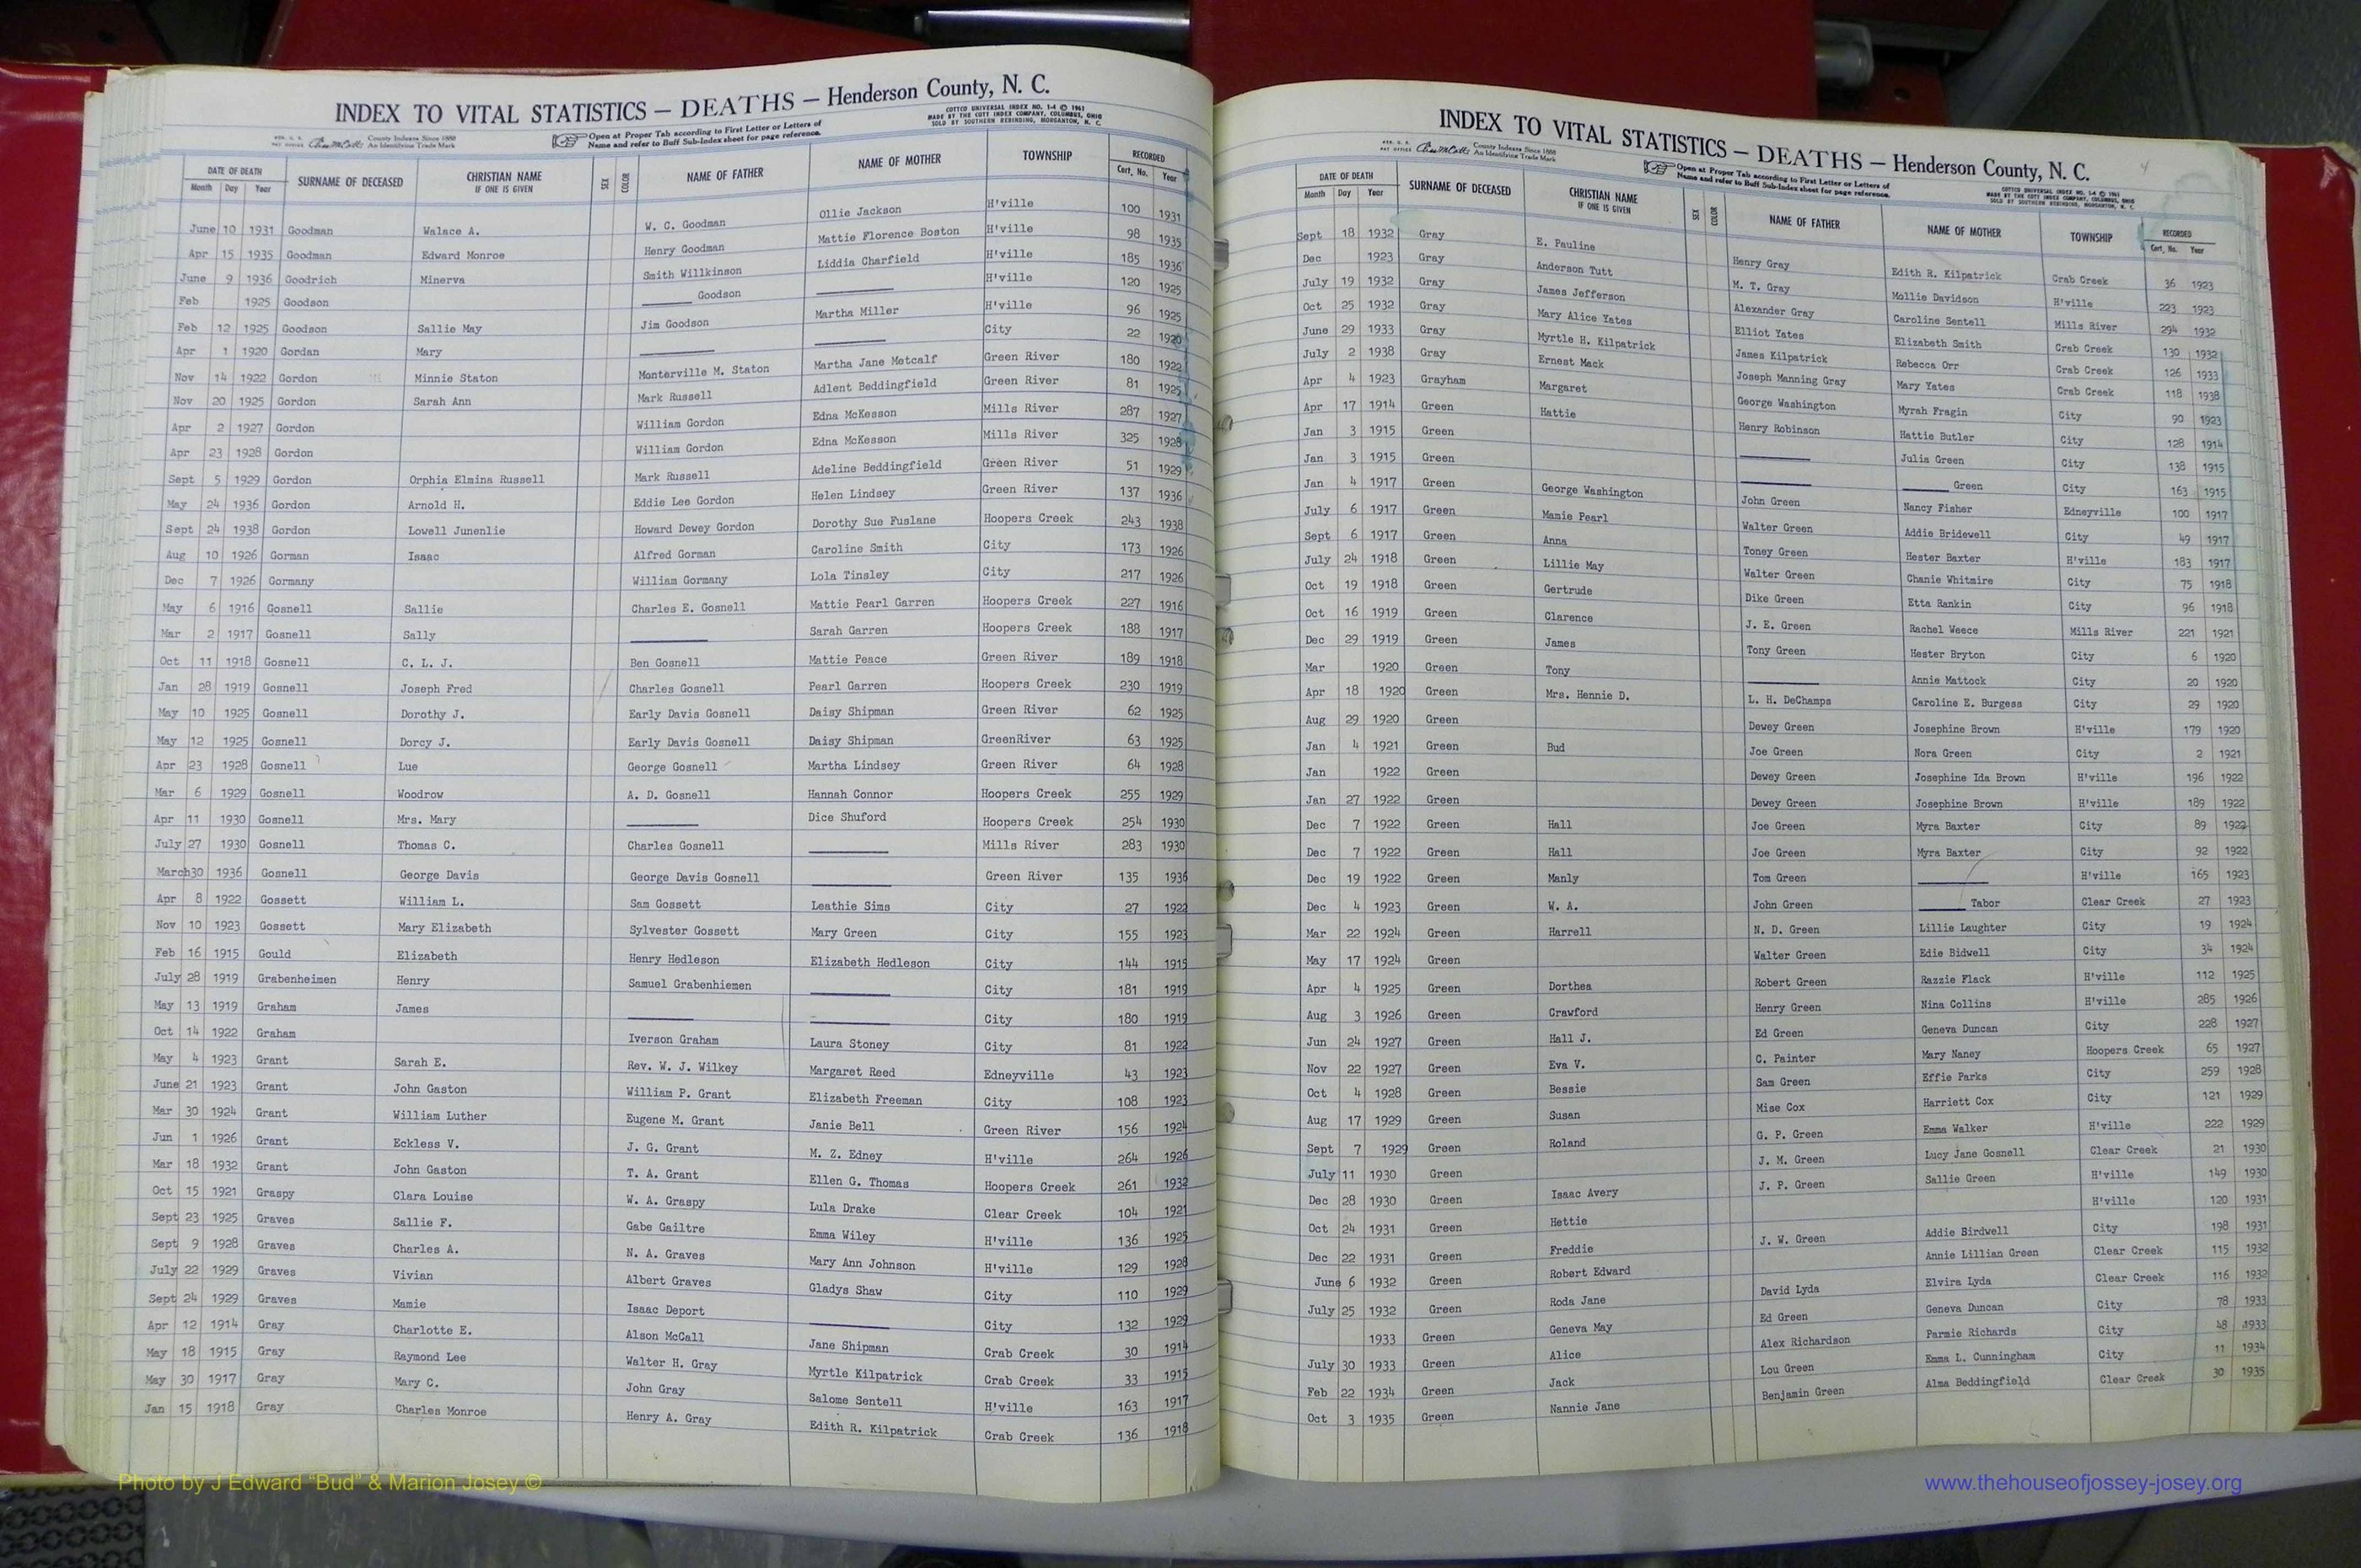 INDEX TO VITAL STATISTICS — DEATHS — Henderson County, N. C.
REG. U. S. PAT. OFFICE County Indexes Since 1888 An Identifying Trade Mark
Open at Proper Tab according to First Letter or Letters of
Name and refer to Buff Sub-Index sheet for page reference.
COTTCO UNIVERSAL INDEX NO. 1-4 © 1961
MADE BY THE COTT INDEX COMPANY, COLUMBUS, OHIO
SOLD BY SOUTHERN REBINDING, MORGANTON, N. C.
DATE OF DEATH SURNAME OF DECEASED CHRISTIAN NAME IF ONE IS GIVEN SEX COLOR NAME OF FATHER NAME OF MOTHER TOWNSHIP RECORDED
Month Day Year Cert. No. Year
June 10 1931 Goodman Walace A. W. C. Goodman Ollie Jackson H'ville 100 1931
Apr 15 1935 Goodman Edward Monroe Henry Goodman Mattie Florence Boston H'ville 98 1935
June 9 1936 Goodrich Minerva Smith Willkinson Liddia Charfield H'ville 185 1936
Feb 1925 Goodson Goodson H'ville 120 1925
Feb 12 1925 Goodson Sallie May Jim Goodson Martha Miller H'ville 96 1925
Apr 1 1920 Gordan Mary City 22 1920
Nov 14 1922 Gordon Minnie Staton Monterville M. Staton Martha Jane Metcalf Green River 180 1922
Nov 20 1925 Gordon Sarah Ann Mark Russell Adlent Beddingfield Green River 81 1925
Apr 2 1927 Gordon William Gordon Edna McKesson Mills River 287 1927
Apr 23 1928 Gordon William Gordon Edna McKesson Mills River 325 1928
Sept 5 1929 Gordon Orphia Elmina Russell Mark Russell Adeline Beddingfield Green River 51 1929
May 24 1936 Gordon Arnold H. Eddie Lee Gordon Helen Lindsey Green River 137 1936
Sept 24 1938 Gordon Lowell Junenlie Howard Dewey Gordon Dorothy Sue Fuslane Hoopers Creek 243 1938
Aug 10 1926 Gorman Isaac Alfred Gorman Caroline Smith City 173 1926
Dec 7 1926 Gormany William Gormany Lola Tinsley City 217 1926
May 6 1916 Gosnell Sallie Charles E. Gosnell Mattie Pearl Garren Hoopers Creek 227 1916
Mar 2 1917 Gosnell Sally Sarah Garren Hoopers Creek 188 1917
Oct 11 1918 Gosnell C. L. J. Ben Gosnell Mattie Peace Green River 189 1918
Jan 28 1919 Gosnell Joseph Fred Charles Gosnell Pearl Garren Hoopers Creek 230 1919
May 10 1925 Gosnell Dorothy J. Early Davis Gosnell Daisy Shipman Green River 62 1925
May 12 1925 Gosnell Dorcy J. Early Davis Gosnell Daisy Shipman GreenRiver 63 1925
Apr 23 1928 Gosnell Lue George Gosnell Martha Lindsey Green River 64 1928
Mar 6 1929 Gosnell Woodrow A. D. Gosnell Hannah Connor Hoopers Creek 255 1929
Apr 11 1930 Gosnell Mrs. Mary Dice Shuford Hoopers Creek 254 1930
July 27 1930 Gosnell Thomas C. Charles Gosnell Mills River 283 1930
March30 1936 Gosnell George Davis George Davis Gosnell Green River 135 1936
Apr 8 1922 Gossett William L. Sam Gossett Leathie Sims City 27 1922
Nov 10 1923 Gossett Mary Elizabeth Sylvester Gossett Mary Green City 155 1923
Feb 16 1915 Gould Elizabeth Henry Hedleson Elizabeth Hedleson City 144 1915
July 28 1919 Grabenheimen Henry Samuel Grabenhiemen City 181 1919
May 13 1919 Graham James City 180 1919
Oct 14 1922 Graham Iverson Graham Laura Stoney City 81 1922
May 4 1923 Grant Sarah E. Rev. W. J. Wilkey Margaret Reed Edneyville 43 1923
June 21 1923 Grant John Gaston William P. Grant Elizabeth Freeman City 108 1923
Mar 30 1924 Grant William Luther Eugene M. Grant Janie Bell Green River 156 1924
Jun 1 1926 Grant Eckless V. J. G. Grant M. Z. Edney H'ville 264 1926
Mar 18 1932 Grant John Gaston T. A. Grant Ellen G. Thomas Hoopers Creek 261 1932
Oct 15 1921 Graspy Clara Louise W. A. Graspy Lula Drake Clear Creek 104 1921
Sept 23 1925 Graves Sallie F. Gabe Gailtre Emma Wiley H'ville 136 1925
Sept 9 1928 Graves Charles A. N. A. Graves Mary Ann Johnson H'ville 129 1928
July 22 1929 Graves Vivian Albert Graves Gladys Shaw City 110 1929
Sept 24 1929 Graves Mamie Isaac Deport City 132 1929
Apr 12 1914 Gray Charlotte E. Alson McCall Jane Shipman Crab Creek 30 1914
May 18 1915 Gray Raymond Lee Walter H. Gray Myrtle Kilpatrick Crab Creek 33 1915
May 30 1917 Gray Mary C. John Gray Salome Sentell H'ville 163 1917
Jan 15 1918 Gray Charles Monroe Henry A. Gray Edith R. Kilpatrick Crab Creek 136 1918
INDEX TO VITAL STATISTICS — DEATHS — Henderson County, N. C. 4
REG. U. S. PAT. OFFICE County Indexes Since 1888 An Identifying Trade Mark
Open at Proper Tab according to First Letter or Letters of
Name and refer to Buff Sub-Index sheet for page reference.
COTTCO UNIVERSAL INDEX NO. 1-4 © 1961
MADE BY THE COTT INDEX COMPANY, COLUMBUS, OHIO
SOLD BY SOUTHERN REBINDING, MORGANTON, N. C.
DATE OF DEATH SURNAME OF DECEASED CHRISTIAN NAME IF ONE IS GIVEN SEX COLOR NAME OF FATHER NAME OF MOTHER TOWNSHIP RECORDED
Month Day Year Cert. No. Year
Sept 18 1932 Gray E. Pauline Henry Gray Edith R. Kilpatrick Crab Creek 36 1923
Dec 1923 Gray Anderson Tutt M. T. Gray Mollie Davidson H'ville 223 1923
July 19 1932 Gray James Jefferson Alexander Gray Caroline Sentell Mills River 294 1932
Oct 25 1932 Gray Mary Alice Yates Elliot Yates Elizabeth Smith Crab Creek 130 1932
June 29 1933 Gray Myrtle H. Kilpatrick James Kilpatrick Rebecca Orr Crab Creek 126 1933
July 2 1938 Gray Ernest Mack Joseph Manning Gray Mary Yates Crab Creek 118 1938
Apr 4 1923 Grayham Margaret George Washington Myrah Fragin City 90 1923
Apr 17 1914 Green Hattie Henry Robinson Hattie Butler City 128 1914
Jan 3 1915 Green Julia Green City 138 1915
Jan 3 1915 Green Green City 163 1915
Jan 4 1917 Green George Washington John Green Nancy Fisher Edneyville 100 1917
July 6 1917 Green Mamie Pearl Walter Green Addie Bridewell City 49 1917
Sept 6 1917 Green Anna Toney Green Hester Baxter H'ville 183 1917
July 24 1918 Green Lillie May Walter Green Chanie Whitmire City 75 1918
Oct 19 1918 Green Gertrude Dike Green Etta Rankin City 96 1918
Oct 16 1919 Green Clarence J. E. Green Rachel Weece Mills River 221 1921
Dec 29 1919 Green James Tony Green Hester Bryton City 6 1920
Mar 1920 Green Tony Annie Mattock City 20 1920
Apr 18 1920 Green Mrs. Hennie D. L. H. DeChamps Caroline E. Burgess City 29 1920
Aug 29 1920 Green Dewey Green Josephine Brown H'ville 179 1920
Jan 4 1921 Green Bud Joe Green Nora Green City 2 1921
Jan 1922 Green Dewey Green Josephine Ida Brown H'ville 196 1922
Jan 27 1922 Green Dewey Green Josephine Brown H'ville 189 1922
Dec 7 1922 Green Hall Joe Green Myra Baxter City 89 1922
Dec 7 1922 Green Hall Joe Green Myra Baxter City 92 1922
Dec 19 1922 Green Manly Tom Green H'ville 165 1923
Dec 4 1923 Green W. A. John Green Tabor Clear Creek 27 1923
Mar 22 1924 Green Harrell N. D. Green Lillie Laughter City 19 1924
May 17 1924 Green Walter Green Edie Bidwell City 34 1924
Apr 4 1925 Green Dorthea Robert Green Razzie Flack H'ville 112 1925
Aug 3 1926 Green Crawford Henry Green Nina Collins H'ville 285 1926
Jun 24 1927 Green Hall J. Ed Green Geneva Duncan City 228 1927
Nov 22 1927 Green Eva V. C. Painter Mary Naney Hoopers Creek 65 1927
Oct 4 1928 Green Bessie Sam Green Effie Parks City 259 1928
Aug 17 1929 Green Susan Mise Cox Harriett Cox City 121 1929
Sept 7 1929 Green Roland G. P. Green Emma Walker H'ville 222 1929
July 11 1930 Green J. M. Green Lucy Jane Gosnell Clear Creek 21 1930
Dec 28 1930 Green Isaac Avery J. P. Green Sallie Green H'ville 149 1930
Oct 24 1931 Green Hettie H'ville 120 1931
Dec 22 1931 Green Freddie J. W. Green Addie Birdwell City 198 1931
June 6 1932 Green Robert Edward Annie Lillian Green Clear Creek 115 1932
July 25 1932 Green Roda Jane David Lyda Elvira Lyda Clear Creek 116 1932
1933 Green Geneva May Ed Green Geneva Duncan City 78 1933
July 30 1933 Green Alice Alex Richardson Parmie Richards City 48 1933
Feb 22 1934 Green Jack Lou Green Emma L. Cunningham City 11 1934
Oct 3 1935 Green Nannie Jane Benjamin Green Alma Beddingfield Clear Creek 30 1935
Photo by J Edward "Bud" & Marion Josey ©
www.thehouseofjossey-josey.org